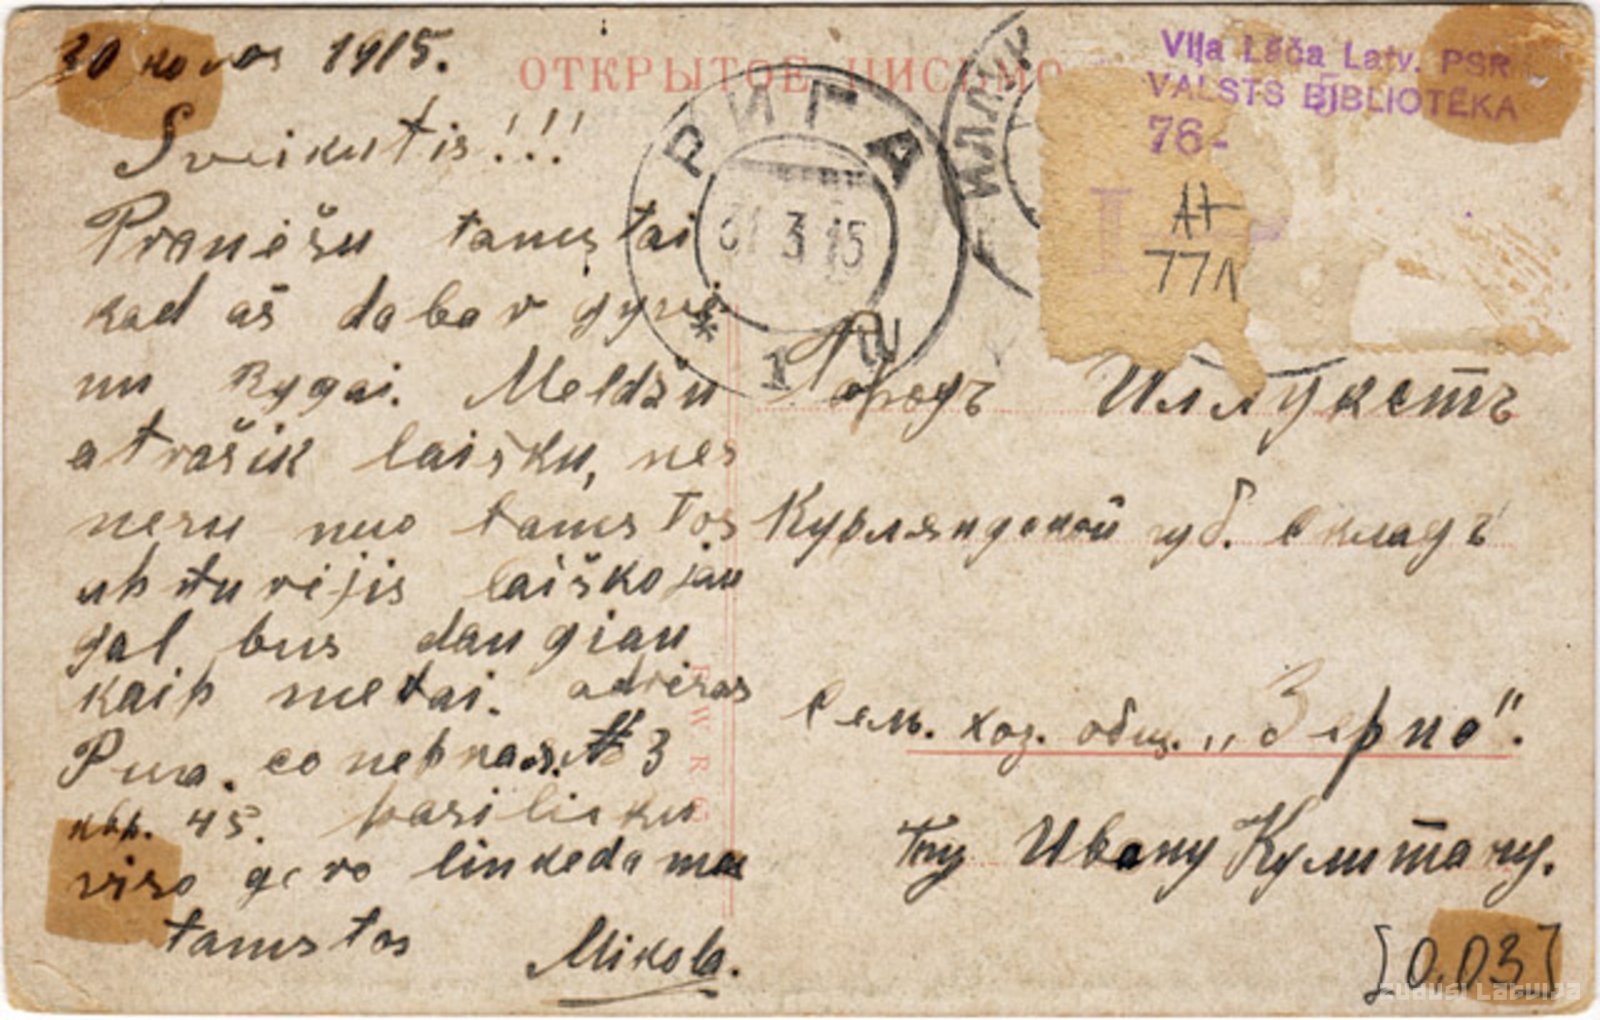 30 kovos 1915.
Sveikutis!!!
Pranėšu tamstai
kad aš dabar gyve
nu Rygai. Meldžu
atrašik laišku, nes
nesu nuo tamstos
apturėjis laiško jau
gal bus daugiau
kaip metai. adresas
№ 3
45. pasilieku
viso gero linkėdamas
tamstos Mikola.
ОТКРЫТОЕ ПИСЬМО
РИГА
31 3 15
* 1
ИЛЛУК
Viļa Lāča Latv. PSR
VALSTS BIBLIOTĒKA
76-
I
77Л
Городъ Иллукстъ
Курляндской губ. Складъ
Сель. хоз. общ. „Зерно".
Гну Ивану
[0.03]
zudusi Latvija